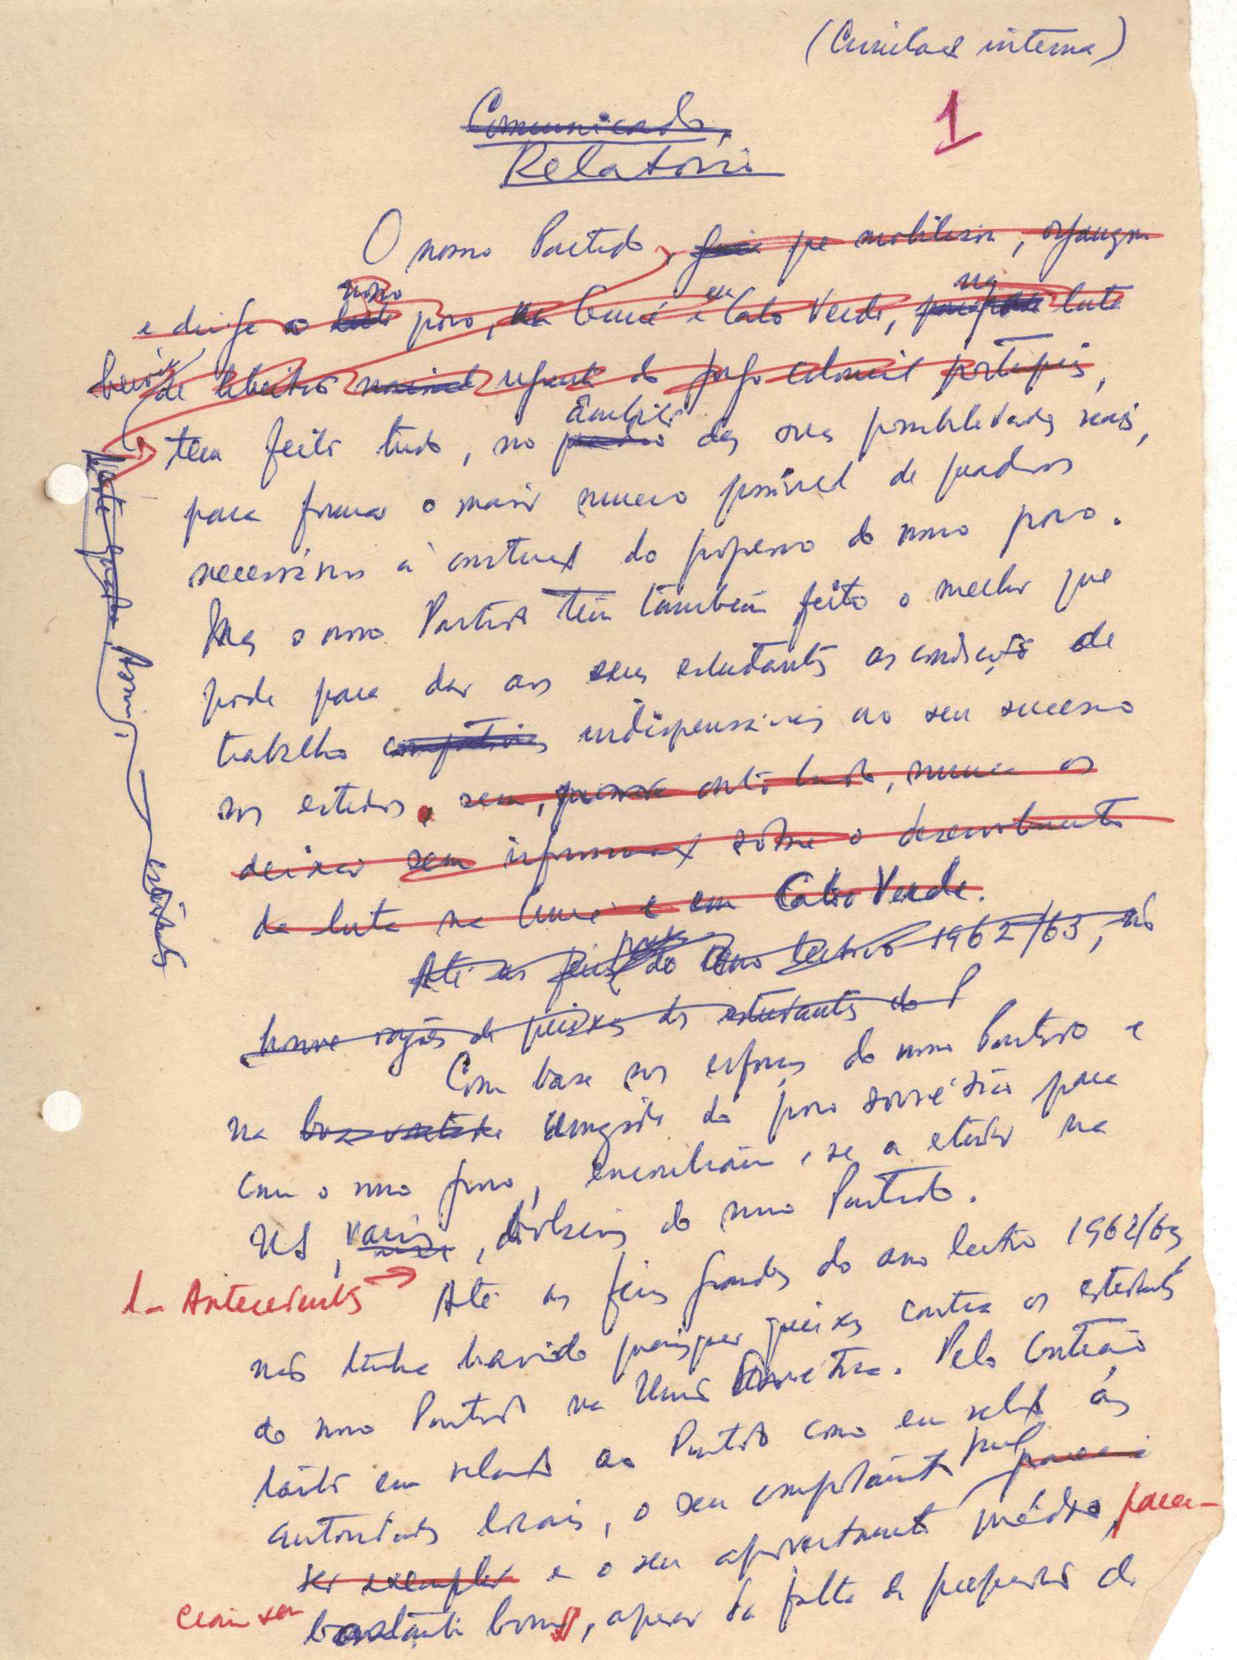 (Circulação interna)
1
Comunicado
Relatório
O nosso Partido, que mobilizou, organizou
e dirige o nosso povo, na Guiné e em Cabo Verde, na luta
de libertação nacional do jugo colonial português,
tem feito tudo, no âmbito das suas possibilidades reais,
para formar o maior número possível de quadros
necessários à construção do progresso do nosso povo.
Mas o nosso Partido tem também feito o melhor que
pode para dar aos seus estudantes as condições de
trabalho indispensáveis ao seu sucesso
nos estudos, sem, quanto tudo, nunca os
deixar sem informação sobre o desenvolvimento
da luta na Guiné e em Cabo Verde.
Até às férias do ano lectivo 1962/63, não
houve razões de queixas dos estudantes do P
Com base nos esforços do nosso Partido e
na boa vontade do povo soviético para
com o nosso povo, encontram-se a estudar na
US, vários, bolseiros do nosso Partido.
1- Antecedentes
Até às férias grandes do ano lectivo 1962/63
não tinha havido quaisquer queixas contra os estudantes
do nosso Partido na União Soviética. Pelo contrário
tanto em relação ao Partido como em relação às
autoridades locais, o seu comportamento
ser exemplar e o seu aproveitamento médio, pare-
ciam ser
bastante bons, apesar da falta de preparação de